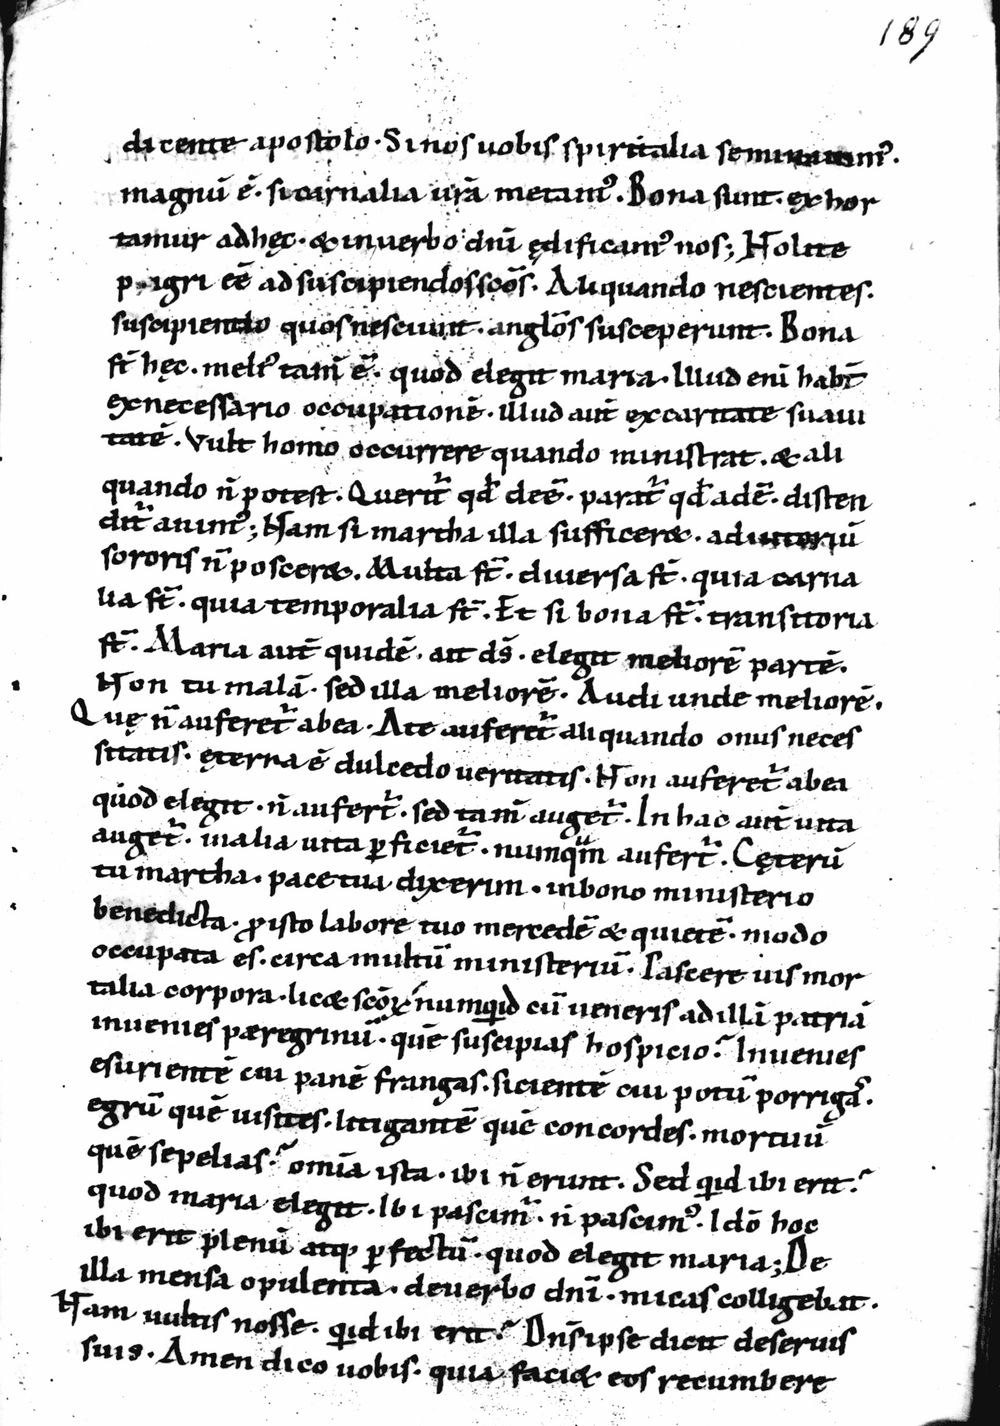 189
dicente apostolo. Si nos uobis spiritalia seminauim᾽.
magnū ē. si carnalia urā metam᾽. Bona sunt. exhor
tamur ad hęc. & in uerbo dnī ędificam᾽ nos; Nolite
pigri eē ad suscipiendos scōs. Aliquando nescientes.
suscipiendo quos nesciunt. anglōs susceperunt. Bona
st̄ hęc. meli᾽ tam̄ ē. quod elegit maria. Illud enī habt̄
ex necessario occupationē. illud aut̄ ex caritate suaui
tatē. Vult homo occurrere quando ministrat. & ali
quando n̄ potest. Querit᷑ qd̄ deē. parat᷑ qd̄ adē. disten
dit᷑ anim᾽; Nam si martha illa sufficer&. adiutoriū
sororis n̄ poscer&. Multa st̄. diuersa st̄. quia carna
lia st̄. quia temporalia st̄. Et si bona st̄. transitoria
st̄. Maria aut̄ quidē. ait dn̄s. elegit meliorē partē.
Non tu malā. sed illa meliorē. Audi unde meliorē.
Quę n̄ auferet᷑ ab ea. A te auferet᷑ aliquando onus neces
sitatis. ęterna ē dulcedo ueritatis. Non auferet᷑ ab ea
quod elegit. n̄ aufert᷑. sed tam̄ auget᷑. In hac aut̄ uita
auget᷑. in alia uita ꝑficiet᷑. numquā aufert᷑. Cęterū
tu martha. pace tua dixerim. in bono ministerio
benedicta. ꝓ isto labore tuo mercedē & quietē. modo
occupata es. circa multū ministeriū. Pascere uis mor
talia corpora. lic& scōꝝ; numquid cū ueneris ad illā patriā
inuenies pæregrinū. quē suscipias hospicio? Inuenies
esurientē cui panē frangas. sicientē cui potū porrigas.
egrū quē uisites. litigantē quē concordes. mortuū
quē sepelias? omīa ista. ibi n̄ erunt. Sed quid ibi erit?
quod maria elegit. Ibi pascim᷑. n̄ pascim᾽. Idō hoc
ibi erit plenū atq; ꝑfectū. quod elegit maria; De
illa mensa opulenta. de uerbo dnī. micas colligebat.
Nam uultis nosse. quid ibi erit? Dn̄s ipse dicit de seruis
suis. Amen dico uobis. quia faci& eos recumbere